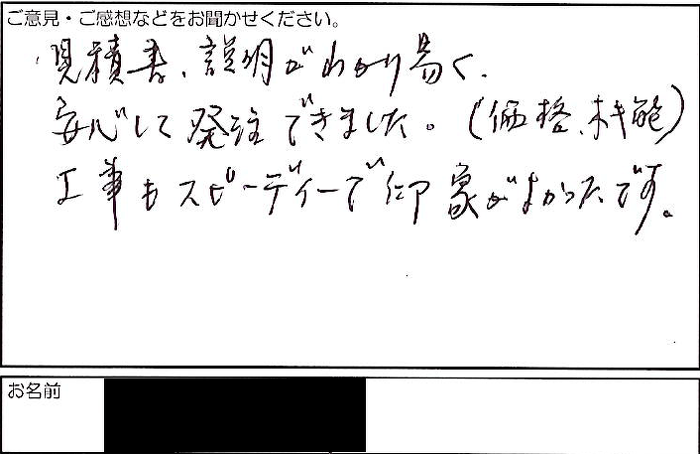 ご意見・ご感想などをお聞かせください。
見積書、説明がわかり易く、
安心して発注できました。(価格、機能)
工事もスピーディーで印象がよかったです。
お名前